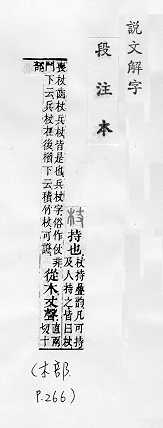 說文解字
段注本
杖 持也 杖持疊韵凡可持
及人持之皆曰杖
喪杖齒杖兵杖皆是也兵杖字俗作仗非鬥
下云兵杖在後欑下云積竹杖可證
從木丈聲 直兩
切十
部
(木部
P.266)